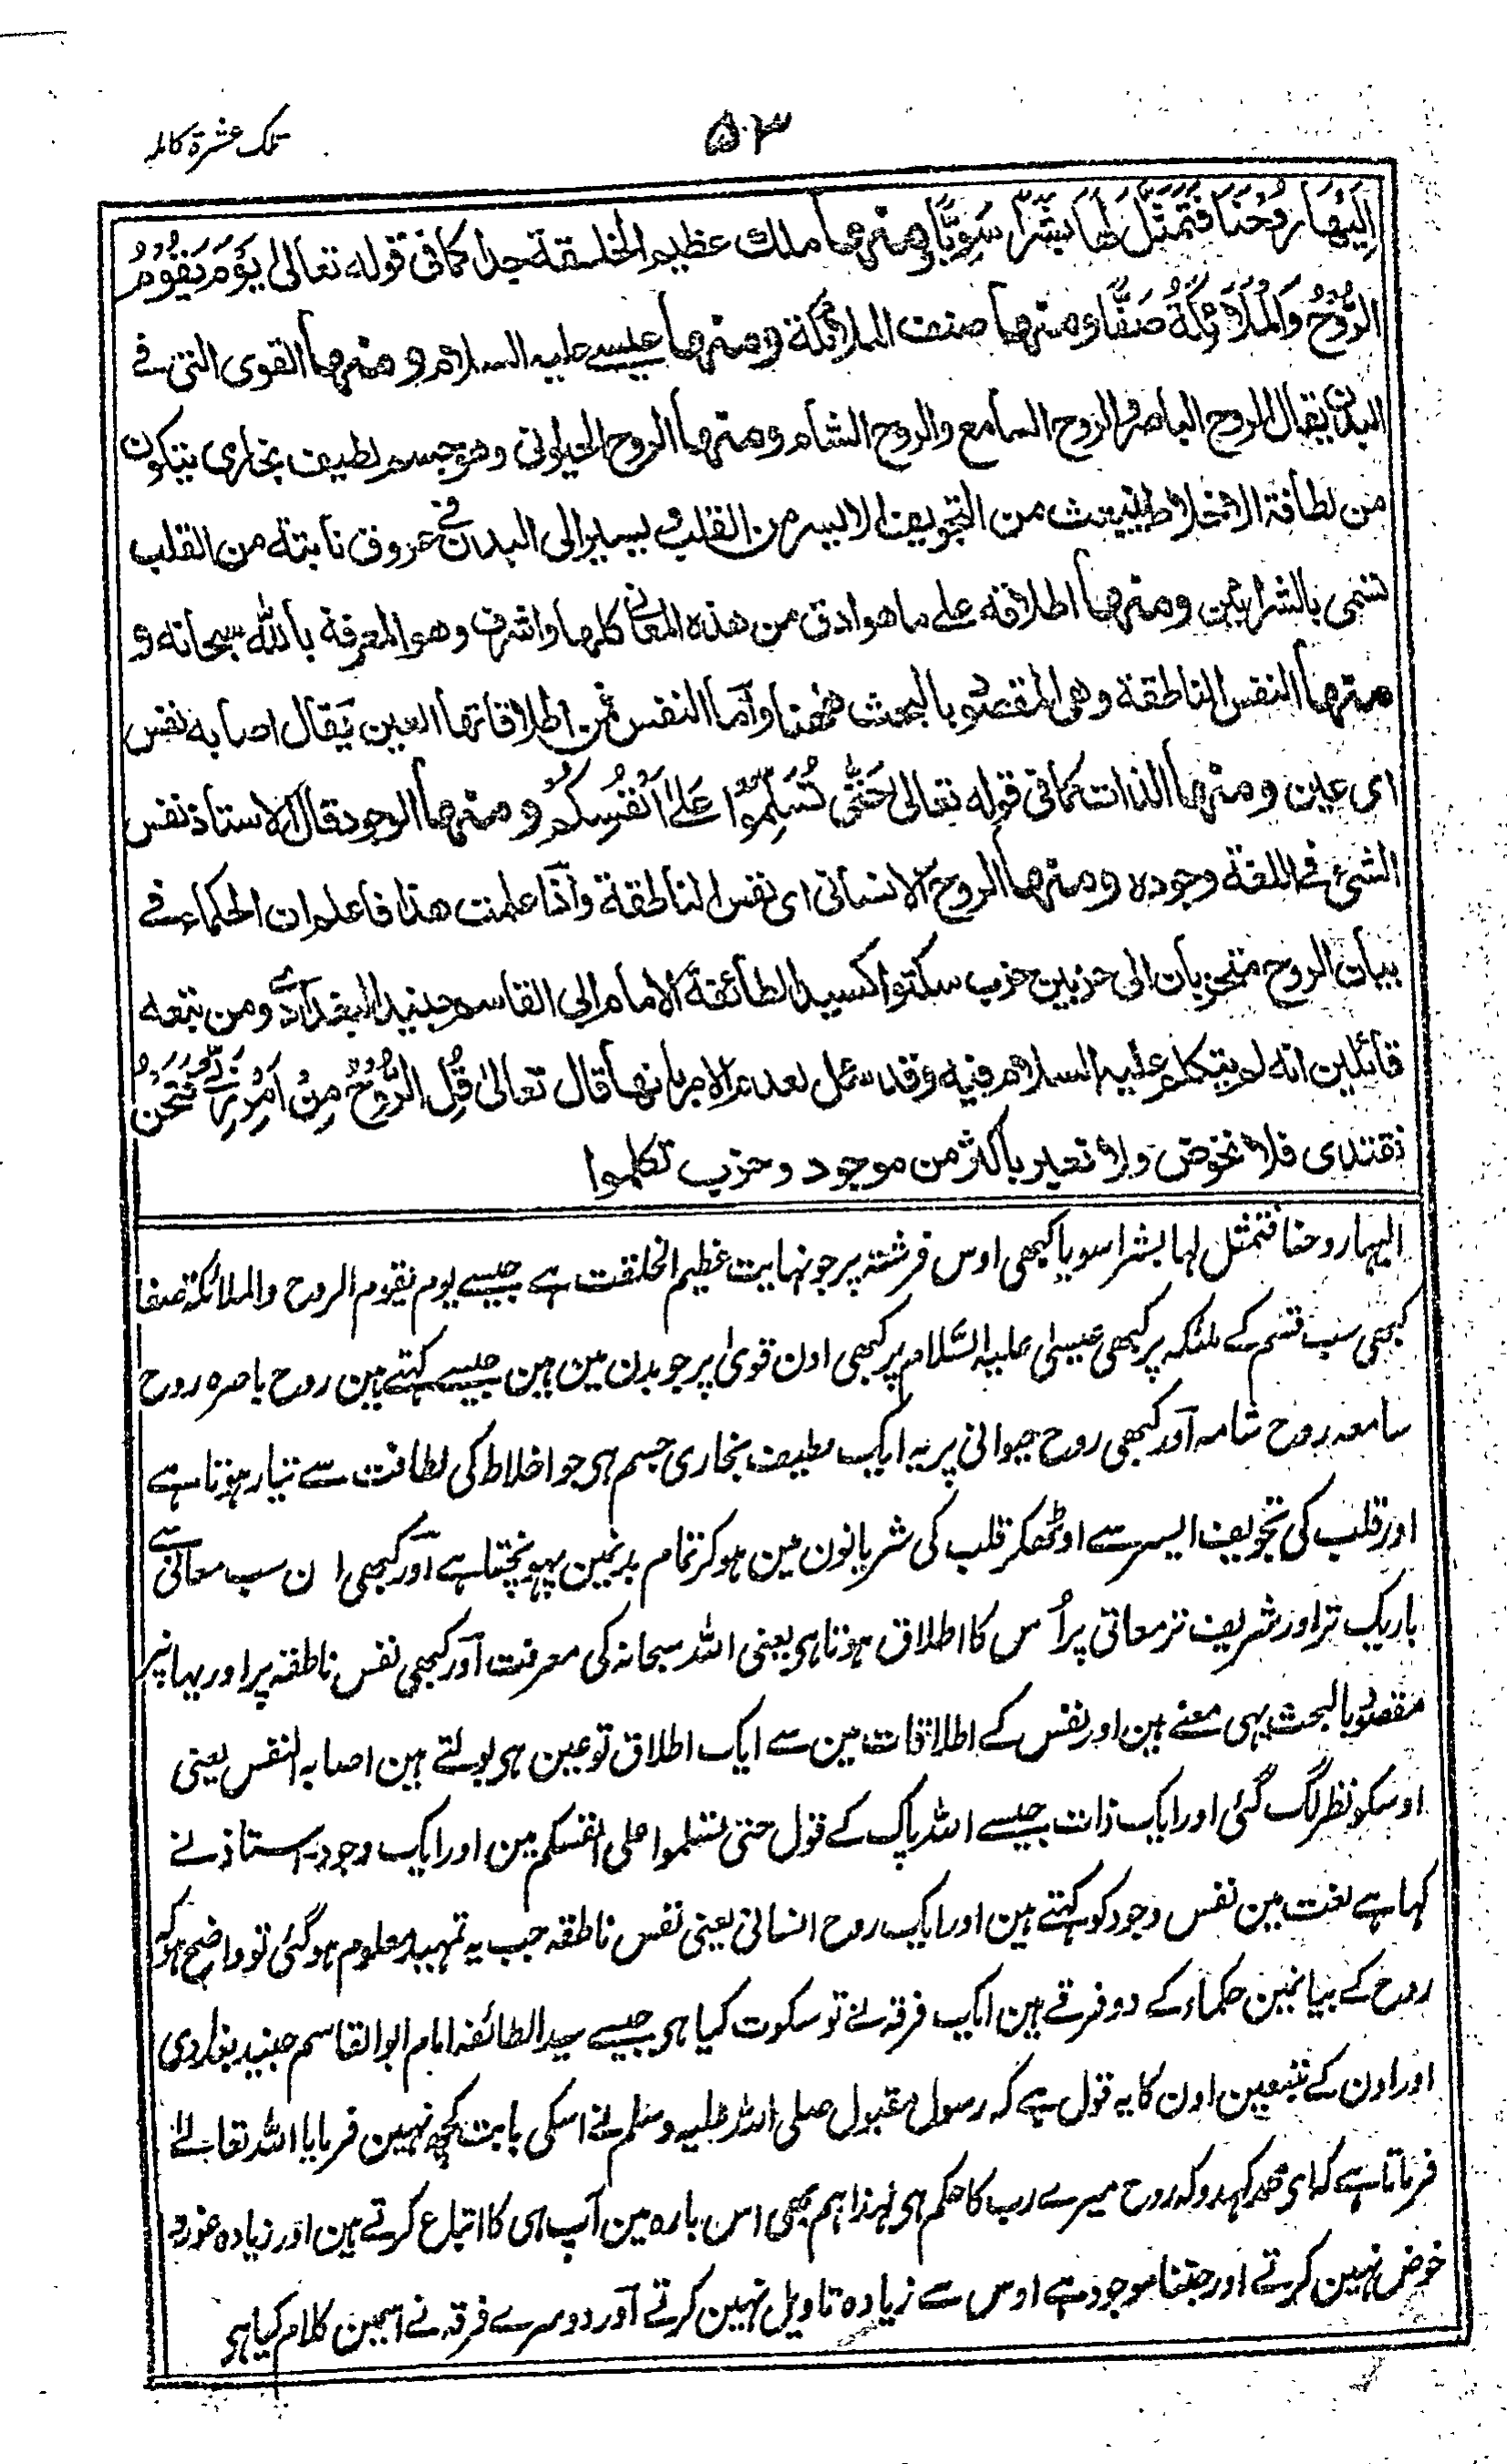 تلک عشرة کاملہ
۵۳
اِلَیْهَا رُوْحَنَا فَتَمَثَّلَ لَهَا بَشَرًا سَوِیًّا ومنها ملك عظیم الخلقة جدا کما فی قوله تعالی یَوْمَ یَقُوْمُ
الرُّوْحُ وَالْمَلَائِکَةُ صَفًّا ومنها صنف الملائکة ومنها عیسے علیه السلام ومنها القوی التی فے
البدن یقال الروح الباصر والروح السامع والروح الشام ومنها الروح الحیوانی وهو جسم لطیف بخاری یتکون
من لطافة الاخلاط ینبعث من التجویف الایسر من القلب و یسیر الی البدن فی عروق نابتة من القلب
تسمی بالشرائین ومنها اطلاقه علے ما هو ادق من هذه المعانی کلها واشرف وهو المعرفة بالله سبحانه و
منها النفس الناطقة وهی المقصود بالبحث ههنا واما النفس فمن اطلاقاتها العین یقال اصابه نفس
ای عین ومنها الذات کما فی قوله تعالی حَتّٰی تُسَلِّمُوْا عَلٰی اَنْفُسِکُمْ ومنها الوجود قال الاستاذ نفس
الشئ فے اللغة وجوده ومنها الروح الانسانی ای نفس الناطقة واذا علمت هذا فاعلم ان الحکماء فے
بیان الروح متحزبان الی حزبین حزب سکتوا کسید الطائفة الامام ابی القاسم جنید البغدادی ومن تبعه
قائلین انه لم یتکلم علیه السلام فیه وقد سئل لعدم الامر بانها قال تعالیٰ قُلِ الرُّوْحُ مِنْ اَمْرِ رَبِّیْ فنحن
نقتدی فلا نخوض ولا نعبر باکثر من موجود وحزب تکلموا
الیہا روحنا فتمثل لہا بشرا سویا کبھی اوس فرشتہ پر جو نہایت عظیم الخلقت ہے جیسے یوم یقوم الروح والملائکۃ صفا
کبھی سب قسم کے ملئکہ پر کبھی عیسیٰ علیہ السّلام پر کبھی اون قویٰ پر جو بدن مین ہین جیسے کہتے ہین روح باصرہ روح
سامعہ روح شامہ اور کبھی روح حیوانی پر یہ ایک لطیف بخاری جسم ہی جو اخلاط کی لطافت سے تیار ہوتا ہے
اور قلب کی تجویف ایسر سے اوٹھکر قلب کی شریانون مین ہو کر تمام بدنمین پہونچتا ہے اور کبھی ان سب معانی سے
باریک تر اور شریف تر معانی پر اُس کا اطلاق ہوتا ہی یعنی اللہ سبحانہ کی معرفت اور کبھی نفس ناطقہ پر اور یہانپر
مقصود بالبحث یہی معنے ہین اور نفس کے اطلاقات مین سے ایک اطلاق تو عین ہی بولتے ہین اصابہ النفس یعنی
اوسکو نظر لگ گئی اور ایک ذات جیسے اللہ پاک کے قول حتی تسلموا علی انفسکم مین اور ایک وجود۔ استاذ نے
کہا ہے لغت مین نفس وجود کو کہتے ہین اور ایک روح انسانی یعنی نفس ناطقہ جب یہ تمہید معلوم ہو گئی تو واضح ہو کہ
روح کے بیانمین حکماء کے دو فرقے ہین ایک فرقہ نے تو سکوت کیا ہی جیسے سید الطائفہ امام ابو القاسم جنید بغدادی
اور اون کے متبعین اون کا یہ قول ہے کہ رسول مقبول صلی اللہ علیہ وسلم نے اسکی بابت کچھ نہین فرمایا اللہ تعالےٰ
فرماتا ہے کہ ای محمد کہدو کہ روح میرے رب کا حکم ہی لہذا ہم بھی اس بارہ مین آپ ہی کا اتباع کرتے ہین اور زیادہ غور و
خوض نہین کرتے اور جتنا موجود ہے اوس سے زیادہ تاویل نہین کرتے اور دوسرے فرقہ نے اسمین کلام کیا ہی